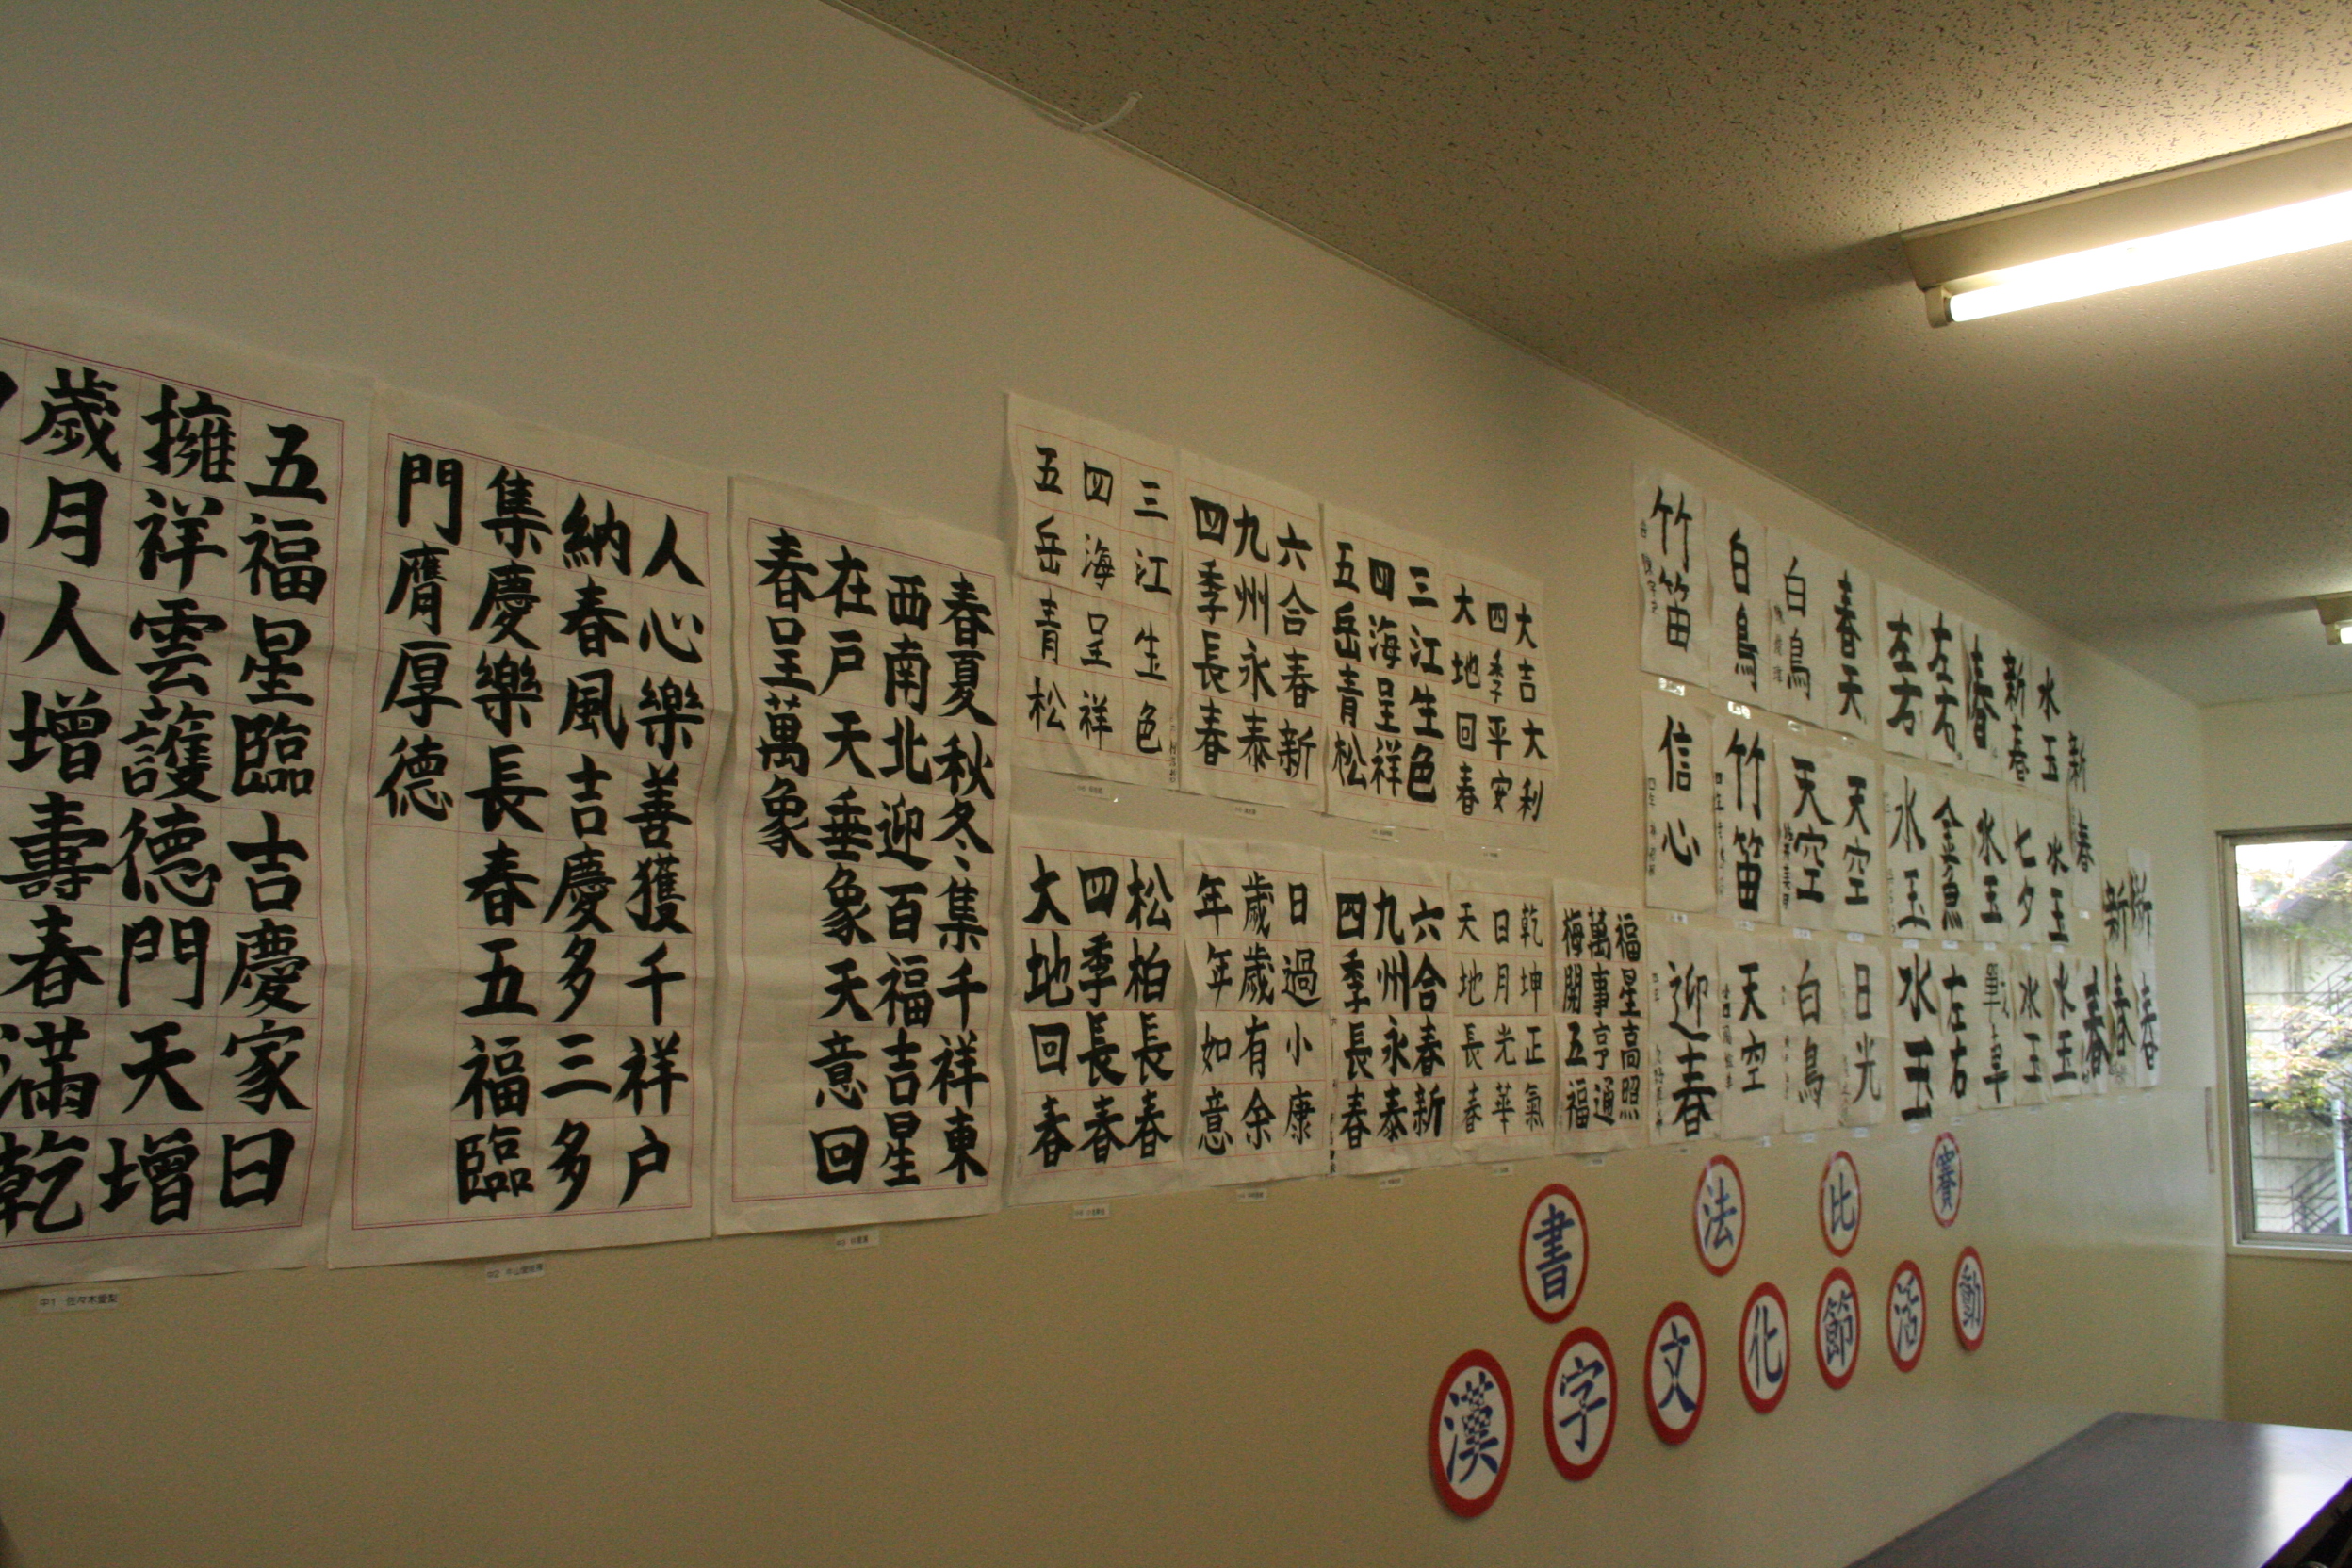 五福星臨吉慶家日
擁祥雲護德門天增
歲月人增壽春滿乾
人心樂善獲千祥户
納春風吉慶多三多
集慶樂長春五福臨
門膺厚德
春夏秋冬集千祥東
西南北迎百福吉星
在戸天垂象天意回
春呈萬象
三江生色
四海呈祥
五岳青松
六合春新
九州永泰
四季長春
三江生色
四海呈祥
五岳青松
大吉大利
四季平安
大地回春
松柏長春
四季長春
大地回春
日過小康
歲歲有余
年年如意
六合春新
九州永泰
四季長春
乾坤正氣
日月光華
天地長春
福星高照
萬事亨通
梅開五福
竹笛
白鳥
白鳥
春天
左右
左右
春
新春
水玉
新春
信心
竹笛
天空
天空
水玉
金魚
水玉
七夕
水玉
新春
迎春
天空
白鳥
日光
水玉
左右
水玉
水玉
春
春
書法比賽
漢字文化節活動
中1 佐々木愛梨